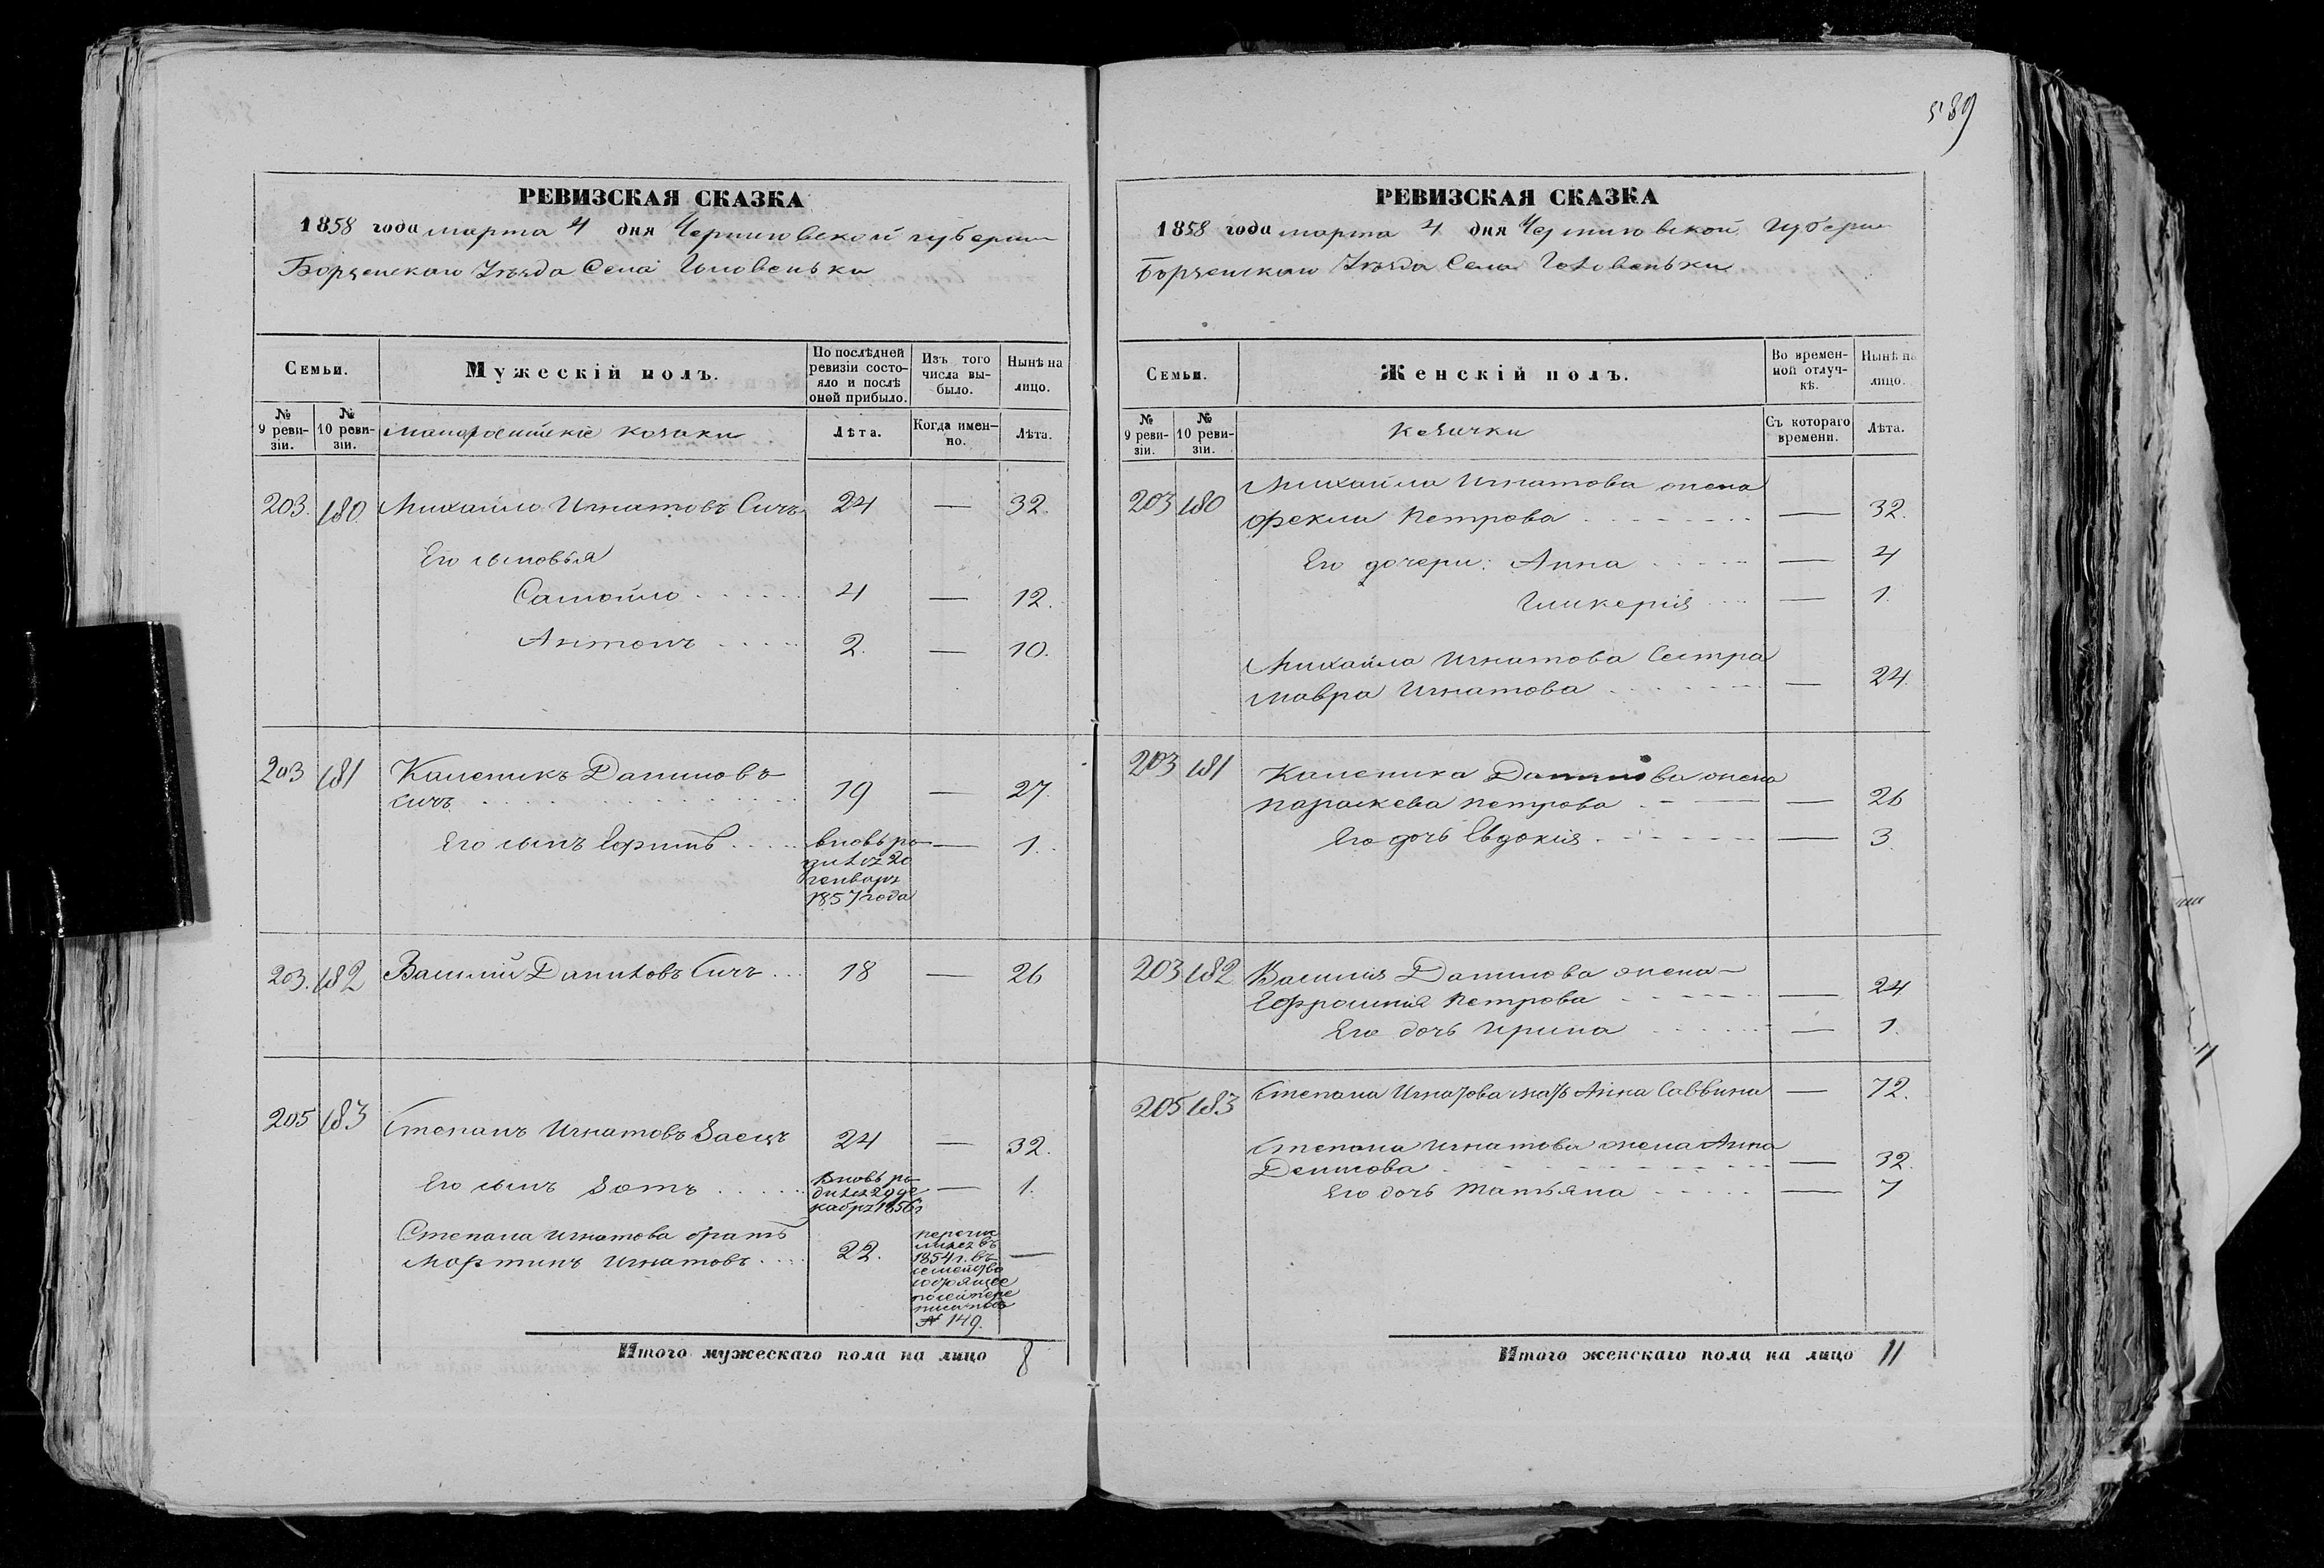 589
РЕВИЗСКАЯ СКАЗКА
1858 года марта 4 дня Черниговской губернии
Борзенскаго Уѣзда Села
Семьи.
Мужескій полъ.
По послѣдней ревизіи состояло и послѣ оной прибыло.
Изъ того числа выбыло.
Нынѣ на лицо.
№ 9 ревизіи.
№ 10 ревизіи.
Малороссійскіе козаки
Лѣта.
Когда именно.
Лѣта.
203. 180. Михайло Игнатовъ Сичъ 24 — 32.
Его сыновья
Самойло 4 — 12.
Антонъ 2. — 10.
203 181 Каленикъ Даниловъ
Сичъ 19 — 27.
Его сынъ Ефимъ вновь ро- — 1.
дился 20
генваря
1857 года
203. 182 Василій Даниловъ Сичъ 18 — 26
205 183 Степанъ Игнатовъ Заецъ 24 — 32.
Его сынъ Зотъ вновь ро- — 1.
дился 29 де
кабря 1856 г
Степана Игнатова братъ
Мартинъ Игнатовъ 22. перечис
лился въ
1854 г. въ
семейство
состоящее
по сей пере
писи подъ
№ 149. —
Итого мужескаго пола на лицо 8
РЕВИЗСКАЯ СКАЗКА
1858 года марта 4 дня Черниговской Губерни
Борзенскаго Уѣзда Села
Семьи.
Женскій полъ.
Во временной отлучкѣ.
Нынѣ на лицо.
№ 9 ревизіи.
№ 10 ревизіи.
Козачки
Съ котораго времени.
Лѣта.
203 180 Михайла Игнатова жена
Фекла Петрова — 32.
Его дочери: Анна — 4
Гликерія — 1.
Михайла Игнатова Сестра
Мавра Игнатова — 24.
203 181 Каленика Данилова жена
Параскева Петрова — 26
Его дочь Евдокія — 3.
203 182 Василія Данилова жена
Ефросинія Петрова — 24
Его дочь Ирина — 1.
205 183 Степана Игнатова мать Анна Саввина — 72.
Степана Игнатова жена Анна
Денисова — 32.
Его дочь Татьяна — 7
Итого женскаго пола на лицо 11